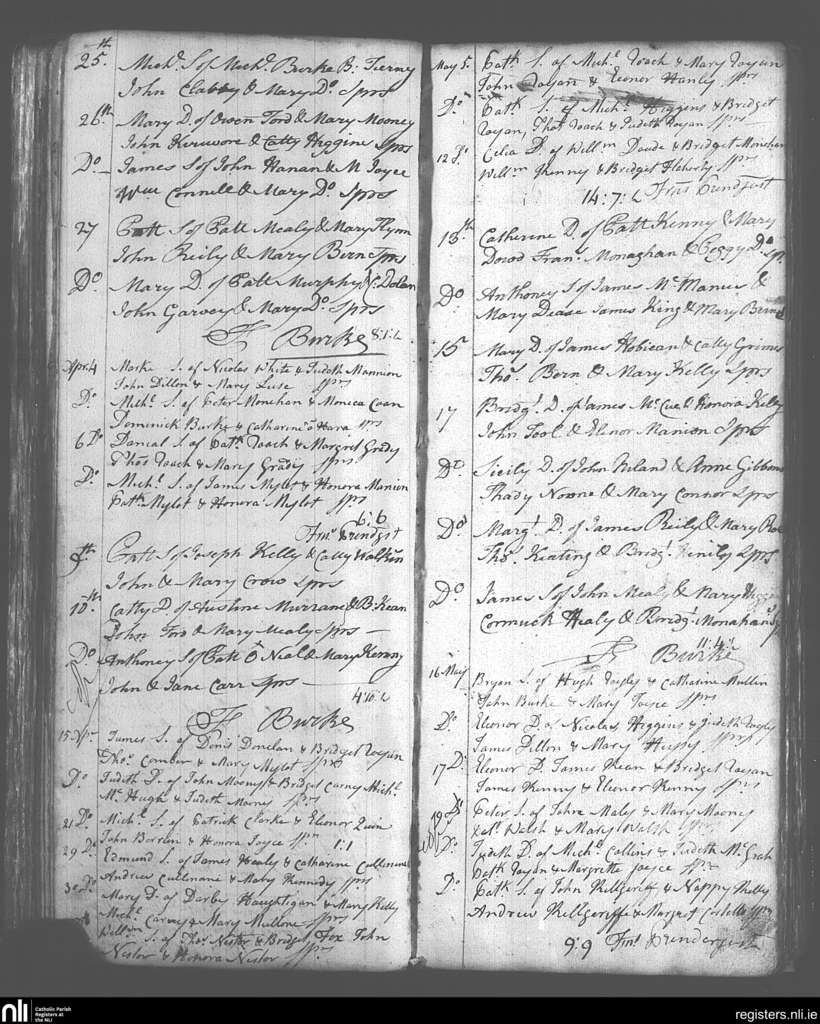 25th. Michl. S of Michl. Burke B: Tierney
John Clabby & Mary Do. Sprs
26th Mary D. of Owen Ford & Mary Mooney
John Kerwone & Catty Higgins Sprs
Do James S of John Hanan & M Joyce
Wm Connell & Mary Do. Sprs
27 Patt S of Patt Mealy & Mary Flynn
John Reily & Mary Bern Sprs
Do Mary D. of Patt Murphy & C: Dolan
John Garvey & Mary Do. Sprs
F Burke 8:1:2
Apr. 4 Marke S. of Nicolas White & Judeth Mannion
John Dillon & Mary Spr
Do. Michl. S. of Peter Monehan & Monica Coan
Dominick Burke & Catharine o Hara spr
6 Do Danial S. of Patk. Roach & Margret Grady
Thos Roach & Mary Grady Sprs
Do. Michl. S. of James Mylot & Honora Manion
Patk Mylot & Honora Mylot Spr.
6:6
Frns. Prendgst
9th. Patt S of Joseph Kelly & Catty
John & Mary Crow Sprs
10th. Catty D of Austine Murrane & B: Kean
John Ford & Mary Mealy Sprs
Do Anthoney S of Patt O Neal & Mary Kenny
John & Jane Carr Sprs
4:10:2
F Burke
15 Apr. James S. of Denis Donelan & Bridget Royan
Thos. Comber & Mary Mylot Sprs
Do Judeth D. of John Mooney & Bridget Carney Michl.
Mc Hugh & Judeth Mooney Sprs
21 Do Michl. S. of Patrick Clarke & Elenor Quin
John Berren & Honora Joyce Spr. 1:1
29 Do Edmund S. of James Healy & Catharine Cullinane
Andrew Cuelinane & Mary Kennedy Sprs
30 Do. Mary D. of Darby Haughtigan & Mary Kelly
Michl. Carvey & Mary Mullone Sprs
Willm S. of Thos. Nestor & Bridget Fox John
Nestor & Honora Nestor Spr.
May 5. Patk S. of Michl. Roach & Mary Royan
John Royan & Elenor Hanley Sprs
Do. Patk. S. of Michl. Higgins & Bridget
Royan, Thos Roach & Judeth Royan Sprs
12 Do. Celia D. of Willm Doude & Bridget Monehan
Willm Kenny & Bridget Flaherty Sprs
14:7:2 Frns Prendgust
13th Catherine D. of Patt Kenny & Mary
Dowd Frans. Monaghan & Peggy Do. Sprs
Do Anthoney S of James Mc Manus &
Mary Dease James King & Mary Bern
15 Mary D. of James Hobican & Catty Grimes
Thos. Bern & Mary Kelly Sprs
17 Bridgt. D. of James Mc Cue & Honora Kelly
John Tool & Elenor Manion Sprs
Do. Sicily D. of John Biland & Anne Gibbons
Thady Noone & Mary Connor Sprs
Do Margt. D. of James Reily & Mary
Thos. Keating & Bridgt. Sprs
Do. James S of John Mealy & Mary Higgins
Cormuck Healy & Bridgt. Monahan Sprs
11:4:2
F Burke
16 May Bryan S. of Hugh & Catharine Mullen
John Burke & Mary Joyce Sprs
Do. Elenor D. of Nicolas Higgins & Judeth
James Dillon & Mary Sprs
17 Do Elenor D. James Kean & Bridget Royan
James Kenny & Elenor Kenny Sprs
19 Do Peter S. of John Maley & Mary Mooney
Patk. Walsh & Mary Walsh Sprs
Do. Judeth D. of Michl. Collins & Judeth Mc Grah
Patk Royan & Margrette Joyce Spr
Do. Patk S. of John Killgeriff & Nappy Kelly
Andrew Killgeriffe & Margret Costello Sprs
9:9 Frns. Prendergast
nli
Catholic Parish
Registers at
the NLI
registers.nli.ie